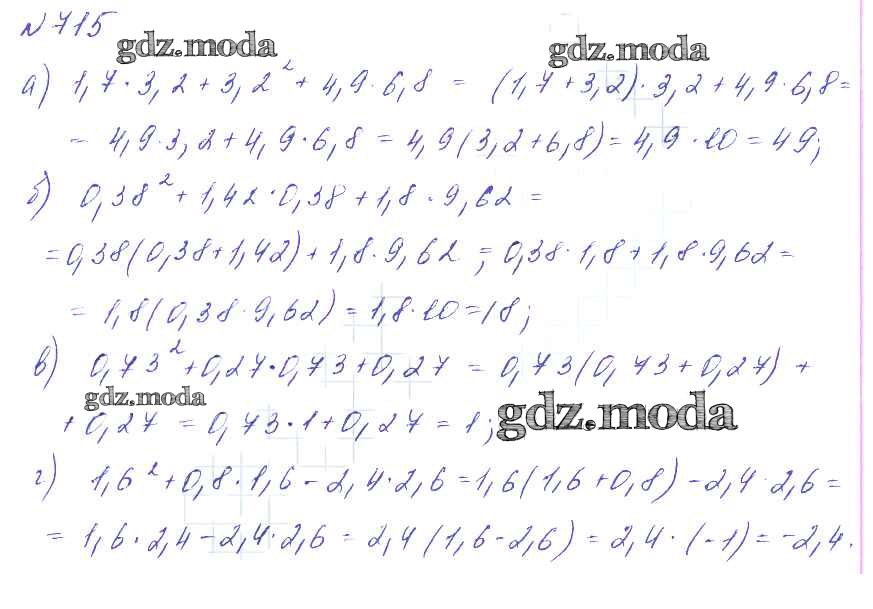 № 715
gdz.moda gdz.moda
а) 1,7 · 3,2 + 3,2² + 4,9 · 6,8 = (1,7 + 3,2) · 3,2 + 4,9 · 6,8 =
= 4,9 · 3,2 + 4,9 · 6,8 = 4,9 (3,2 + 6,8) = 4,9 · 10 = 49;
б) 0,38² + 1,42 · 0,38 + 1,8 · 9,62 =
= 0,38 (0,38 + 1,42) + 1,8 · 9,62 = 0,38 · 1,8 + 1,8 · 9,62 =
= 1,8 (0,38 · 9,62) = 1,8 · 10 = 18;
в) 0,73² + 0,27 · 0,73 + 0,27 = 0,73 (0,73 + 0,27) +
gdz.moda
+ 0,27 = 0,73 · 1 + 0,27 = 1; gdz.moda
г) 1,6² + 0,8 · 1,6 - 2,4 · 2,6 = 1,6 (1,6 + 0,8) - 2,4 · 2,6 =
= 1,6 · 2,4 - 2,4 · 2,6 = 2,4 (1,6 - 2,6) = 2,4 · (-1) = -2,4.